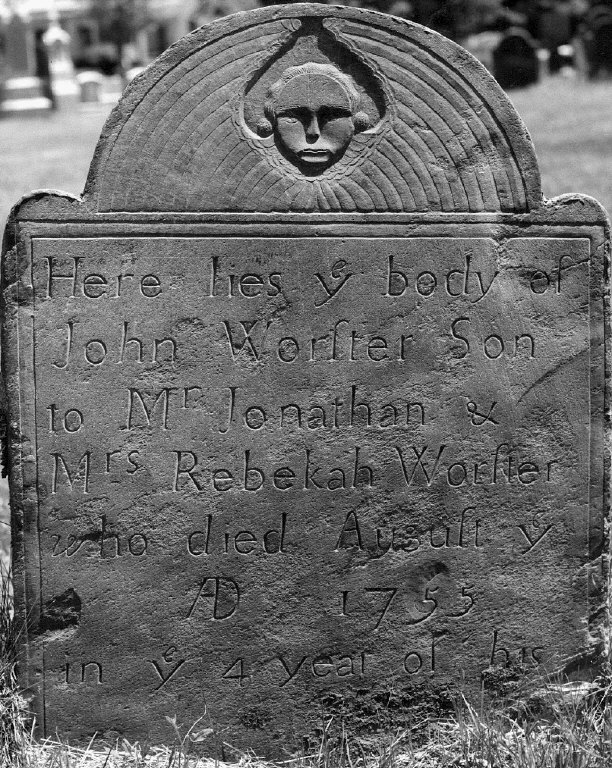 Here lies yᵉ body of
John Worſter Son
to Mʳ Jonathan &
Mʳˢ Rebekah Worſter
who died Auguſt yᵉ
AD 1755
in yᵉ 4 year of his